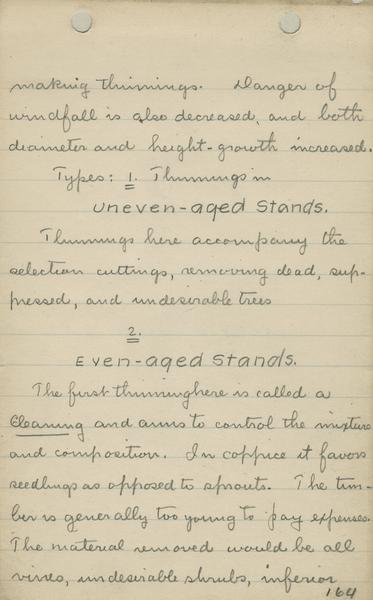 making thinnings. Danger of
windfall is also decreased, and both
diameter and height-growth increased.
Types: 1. Thinnings in
uneven-aged Stands.
Thinnings here accompany the
selection cuttings, removing dead, sup-
pressed, and undesirable trees
2.
Even-aged Stands.
The first thinning here is called a
Cleaning and aims to control the mixture
and composition. In coppice it favors
seedlings as opposed to sprouts. The tim-
ber is generally too young to pay expenses.
The material removed would be all
vines, undesirable shrubs, inferior
164